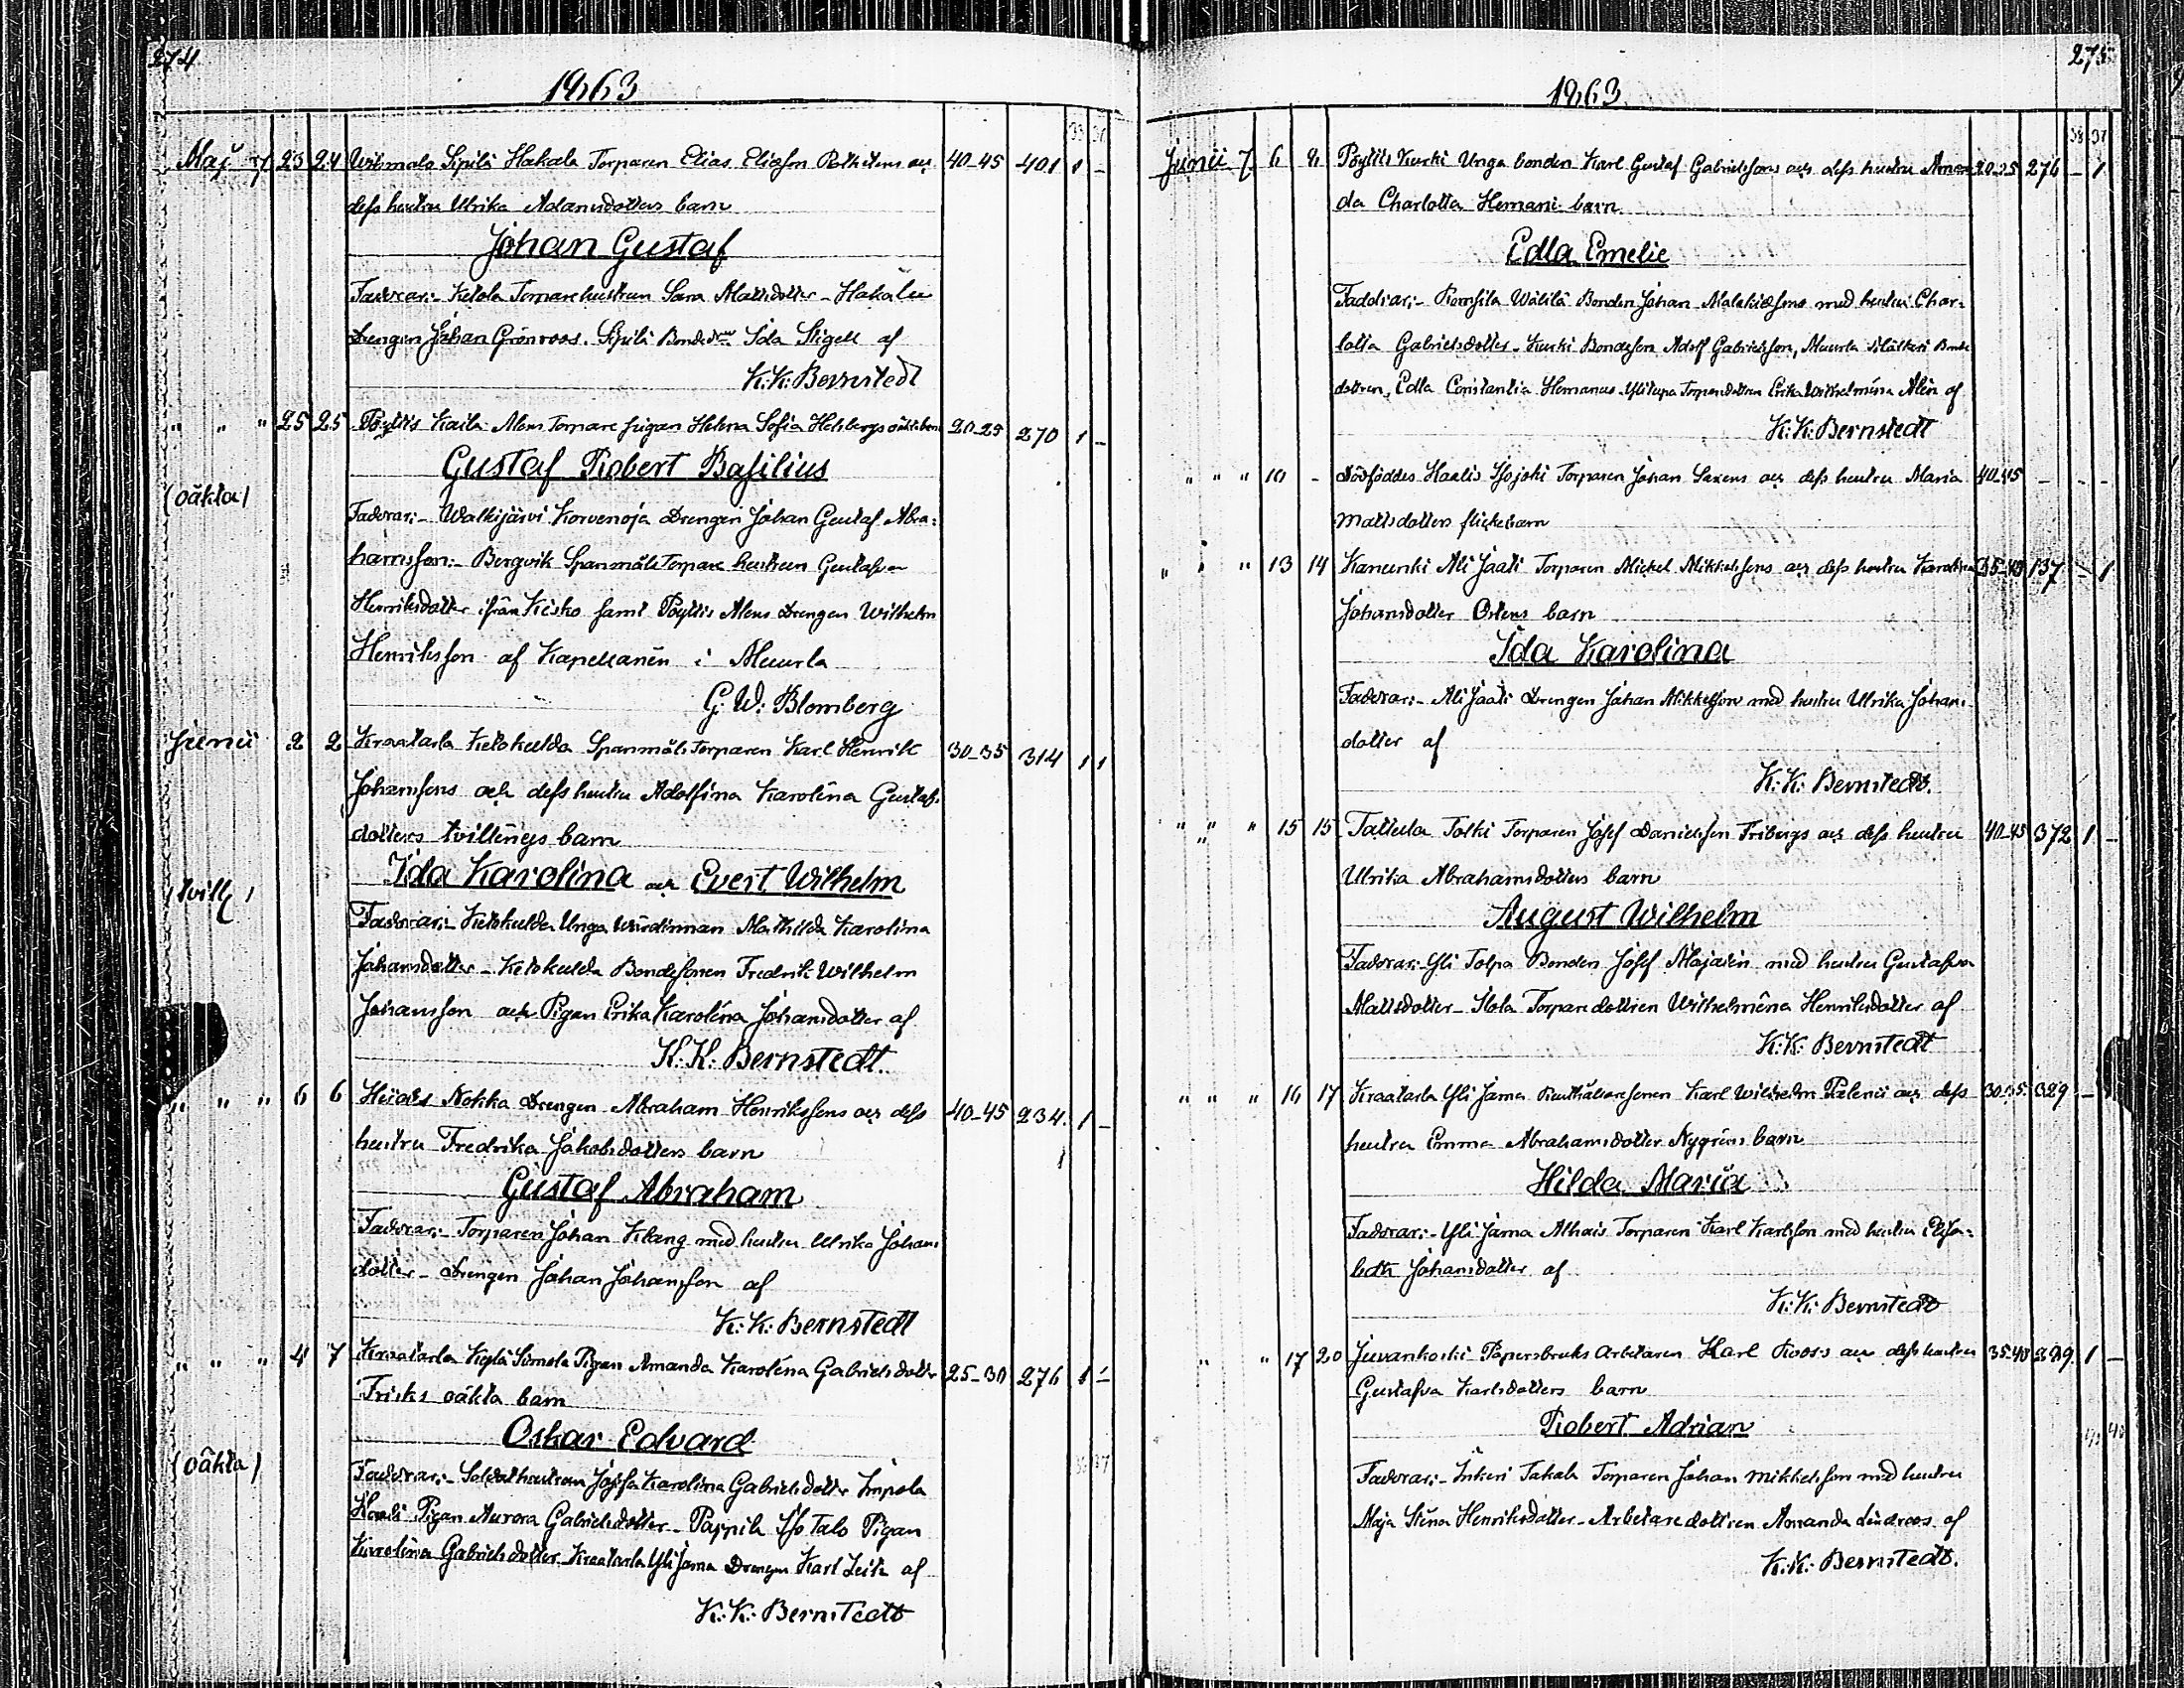 274
1863
Maj 23 24 Wiksmalo Sipilä Hakala Torparen Elias Eliasson och 40-45 401 1 -
dess hustru Ulrika Adamsdotters barn
Johan Gustaf
Faddrar:- Ketola Torparehustrun Sara Mattsdotter - Hakala
Drengen Johan Grönroos. Sipilä Ida Stigell af
K:K: Bernstedt
" " " 25 25 Pöytis Kaila Torpare pigan Helena Sofia oäkta barn 20-25 270 1 -
Gustaf Robert Basilius
(oäkta)
Faddrar:- Walkijärvi Korvenoja Drengen Johan Gustaf Abra-
hamsson:- Bergvik Spanmåls Torpare hustrun Gustafva
Henriksdotter ifrån Kisko samt Pöytis Alens Drengen Wilhelm
Henriksson af Kapellanen i Muurla
G. W: Blomberg
Junii 2 2 Kraatarla Ketokulda Spanmåls Torparen Karl Henrik 30-35 314 1 1
Johanssons och dess hustru Adolfina Karolina Gustafs-
dotters tvillings barn
Ida Karolina och Evert Wilhelm
(tvill)
Faddrar:- Ketokulda Unga Wärdinnan Mathilda Karolina
Johansdotter - Ketokulda Bondesonen Fredrik Wilhelm
Johansson och Pigan Erika Karolina Johansdotter af
K:K: Bernstedt.
" " " 6 6 Nokka Drengen Abraham Henrikssons och dess 40-45 234. 1 -
hustru Fredrika Jakobsdotters barn
Gustaf Abraham
Faddrar:- Torparen Johan Klang med hustru Ulrika Johans-
dotter - Drengen Johan Johansson af
K:K: Bernstedt
" " " 4 7 Kraatarla Kylä Simola Pigan Amanda Karolina Gabrielsdotter 25-30 276 1 -
Frisks oäkta barn
Oskar Edvard
(oäkta)
Faddrar:- Soldathustrun Josefa Karolina Gabrielsdotter Impola
Pigan Aurora Gabrielsdotter - Pappila Iso Talo Pigan
Karolina Gabrielsdotter Kraatarla Yli Jama Drengen Karl af
K:K: Bernstedt
275
1863.
38 37
Junii 6 8 Pöytis Kurki Unga bonden Karl Gustaf Gabrielssons och dess hustru Aman- 20-25 276 - 1
da Charlotta Hemani barn
Edla Emelie
Faddrar:- Wälilä Bonden Johan Malakiasson med hustru Char-
lotta Gabrielsdotter - Kurki Bondeson Adolf Gabrielsson, Muurla Bonde
dottren, Edla Constantia Hemanus - Ylikupa Torparedottren Erika Wilhelmina Alén af
K:K: Bernstedt
" " " 10 - Dödföddes Haalis Isojoki Torparen Johan Saxens och dess hustru Maria 40-45 - - -
Mattsdotters flickebarn
" " " 13 14 Kanunki Ali Jaati Torparen Mickel Mikkelssons och dess hustru Karolina 35-40 137 - 1
Johansdotter Ostens barn
Ida Karolina
Faddrar:- Ali Jaati Drengen Johan Mikkelsson med hustru Ulrika Johans-
dotter af
K:K: Bernstedt.
" " " 15 15 Tattula Tolki Torparen Josef Danielsson Fribergs och dess hustru 40-45 372 1 -
Ulrika Abrahamsdotters barn
August Wilhelm
Faddrar:- Yli Tolpa Bonden Josef Majalin med hustru Gustafva
Mattsdotter - Ilola Torparedottren Wilhelmina Henriksdotter af
K:K: Bernstedt
" " " 16 17 Kraatarla Yli Jama Rusthållaresonen Karl Wilhelm Palenii och dess 30-35. 329 -
hustru Emma Abrahamsdotter Nygrens barn
Hilda Maria
Faddrar:- Yli Jama Alhais Torparen Karl Karlsson med hustru Elisa-
beth Johansdotter af
K:K: Bernstedt
" " 17 20 Juvankoski Papersbruks Arbetaren Karl Roos's och dess hustru 35-40 1 -
Gustafva Karlsdotters barn
Robert Adrian
Faddrar:- Inkeri Takala Torparen Johan Mikkelsson med hustru
Maja Stina Henriksdotter - Arbetaredottren Amanda Lindroos af
K:K: Bernstedt.